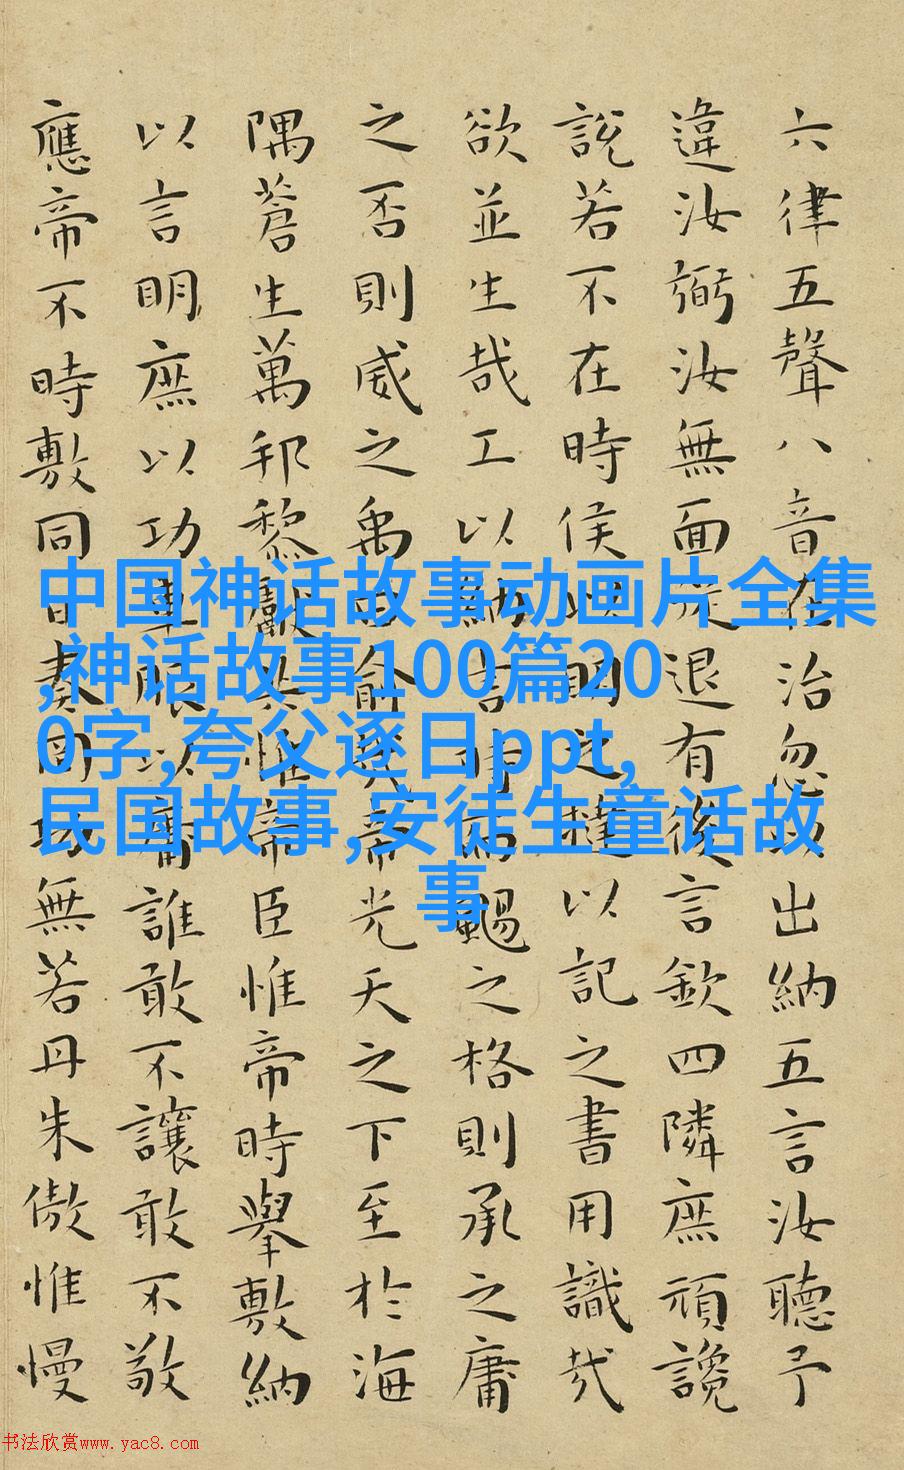 六律五聲八音在治忽以出納五言汝聽予
違汝弼汝無面從退有後言欽四隣庶頑讒
說若不在時侯以明之撻以記之書用識哉
欲並生哉工以納言時而颺之格則承之庸
之否則威之禹曰俞哉帝光天之下至於海
隅蒼生萬邦黎獻共惟帝臣惟帝時舉敷納
以言明庶以功車服以庸誰敢不讓敢不敬
應帝不時敷同日奏罔功無若丹朱傲惟慢
中国神话故事动画片全集
,神话故事100篇20
0字,夸父逐日ppt,
民国故事,安徒生童话故
事
书法欣赏www.yac8.com